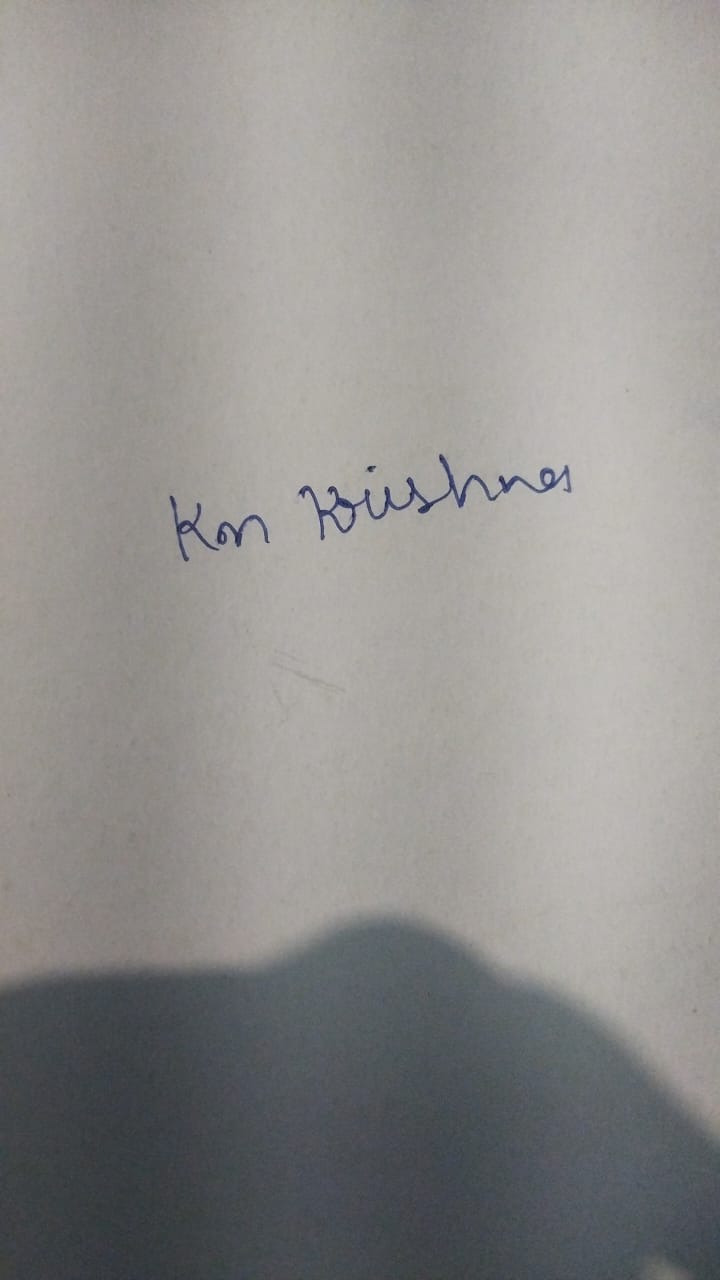 Km Krishna